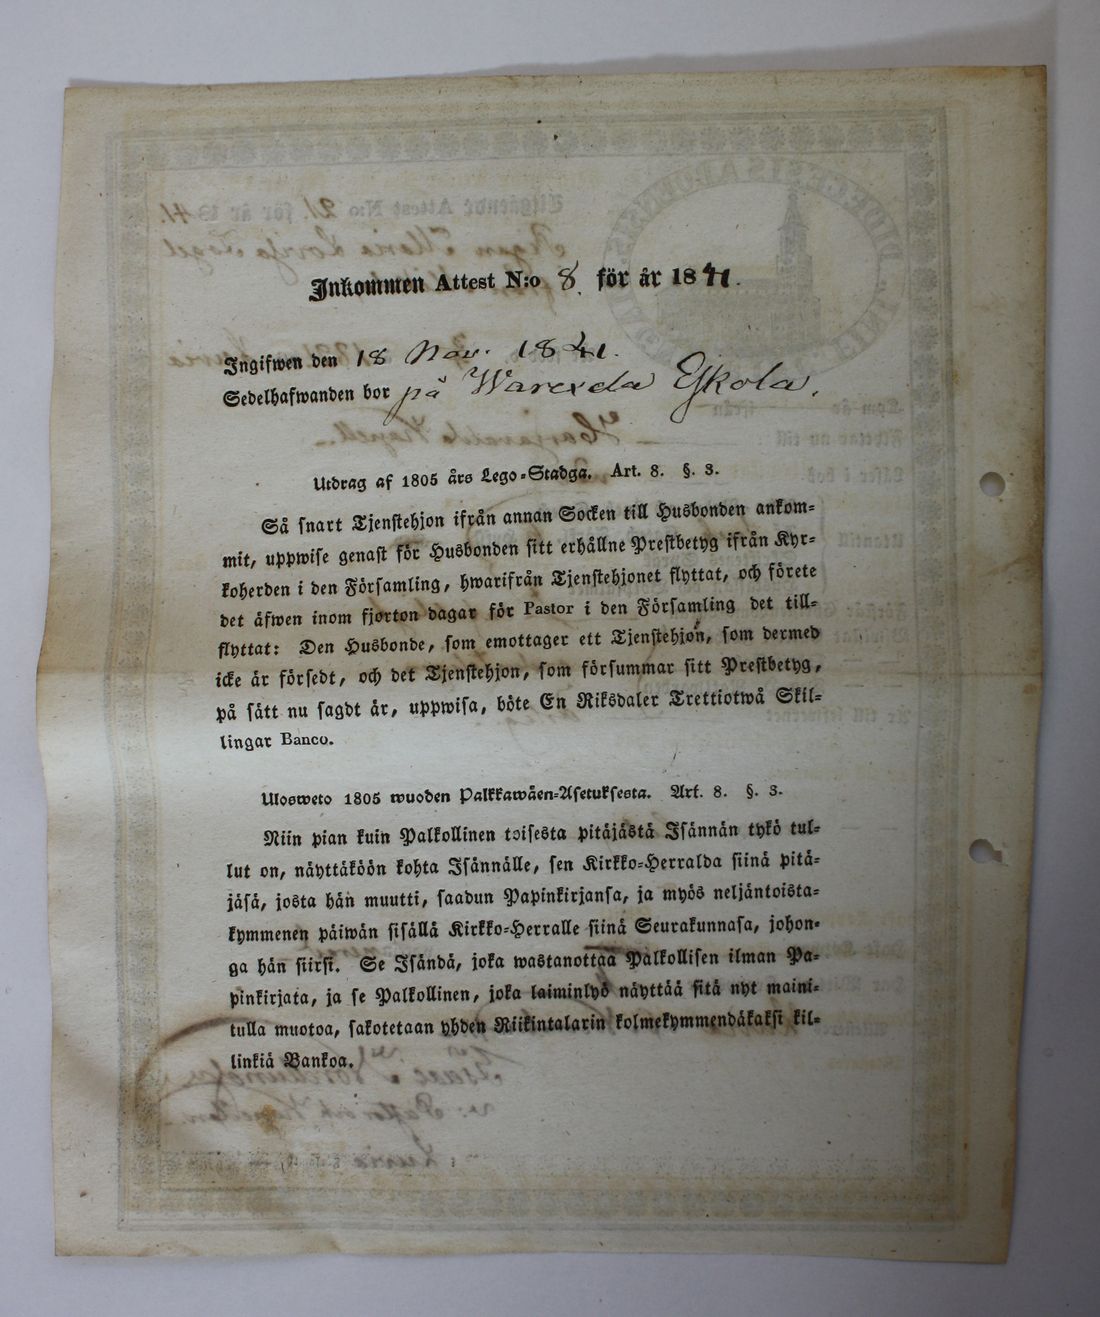 Inkommen Attest N:o 8. för år 1841.
Ingifwen den 18 Nov. 1841.
Sedelhafwanden bor på Eskola.
Utdrag af 1805 års Lego-Stadga. Art. 8. §. 3.
Så snart Tjenstehjon ifrån annan Socken till Husbonden ankom-
mit, uppwise genast för Husbonden sitt erhållne Prestbetyg ifrån Kyr-
koherden i den Församling, hwarifrån Tjenstehjonet flyttat, och förete
det äfwen inom fjorton dagar för Pastor i den Församling det till-
flyttat: Den Husbonde, som emottager ett Tjenstehjon, som dermed
icke är försedt, och det Tjenstehjon, som försummar sitt Prestbetyg,
på sätt nu sagdt är, uppwisa, böte En Riksdaler Trettiotwå Skil-
lingar Banco.
Ulosweto 1805 wuoden Palkkawäen-Asetuksesta. Art. 8. §. 3.
Niin pian kuin Palkollinen toisesta pitäjästä Isännän tykö tul-
lut on, näyttäköön kohta Isännälle, sen Kirkko-Herralda siinä pitä-
jäsä, josta hän muutti, saadun Papinkirjansa, ja myös neljäntoista-
kymmenen päiwän sisällä Kirkko-Herralle siinä Seurakunnasa, johon-
ga hän siirsi. Se Isändä, joka wastanottaa Palkollisen ilman Pa-
pinkirjata, ja se Palkollinen, joka laiminlyö näyttää sitä nyt maini-
tulla muotoa, sakotetaan yhden Riikintalarin kolmekymmendäkaksi kil-
linkiä Bankoa.